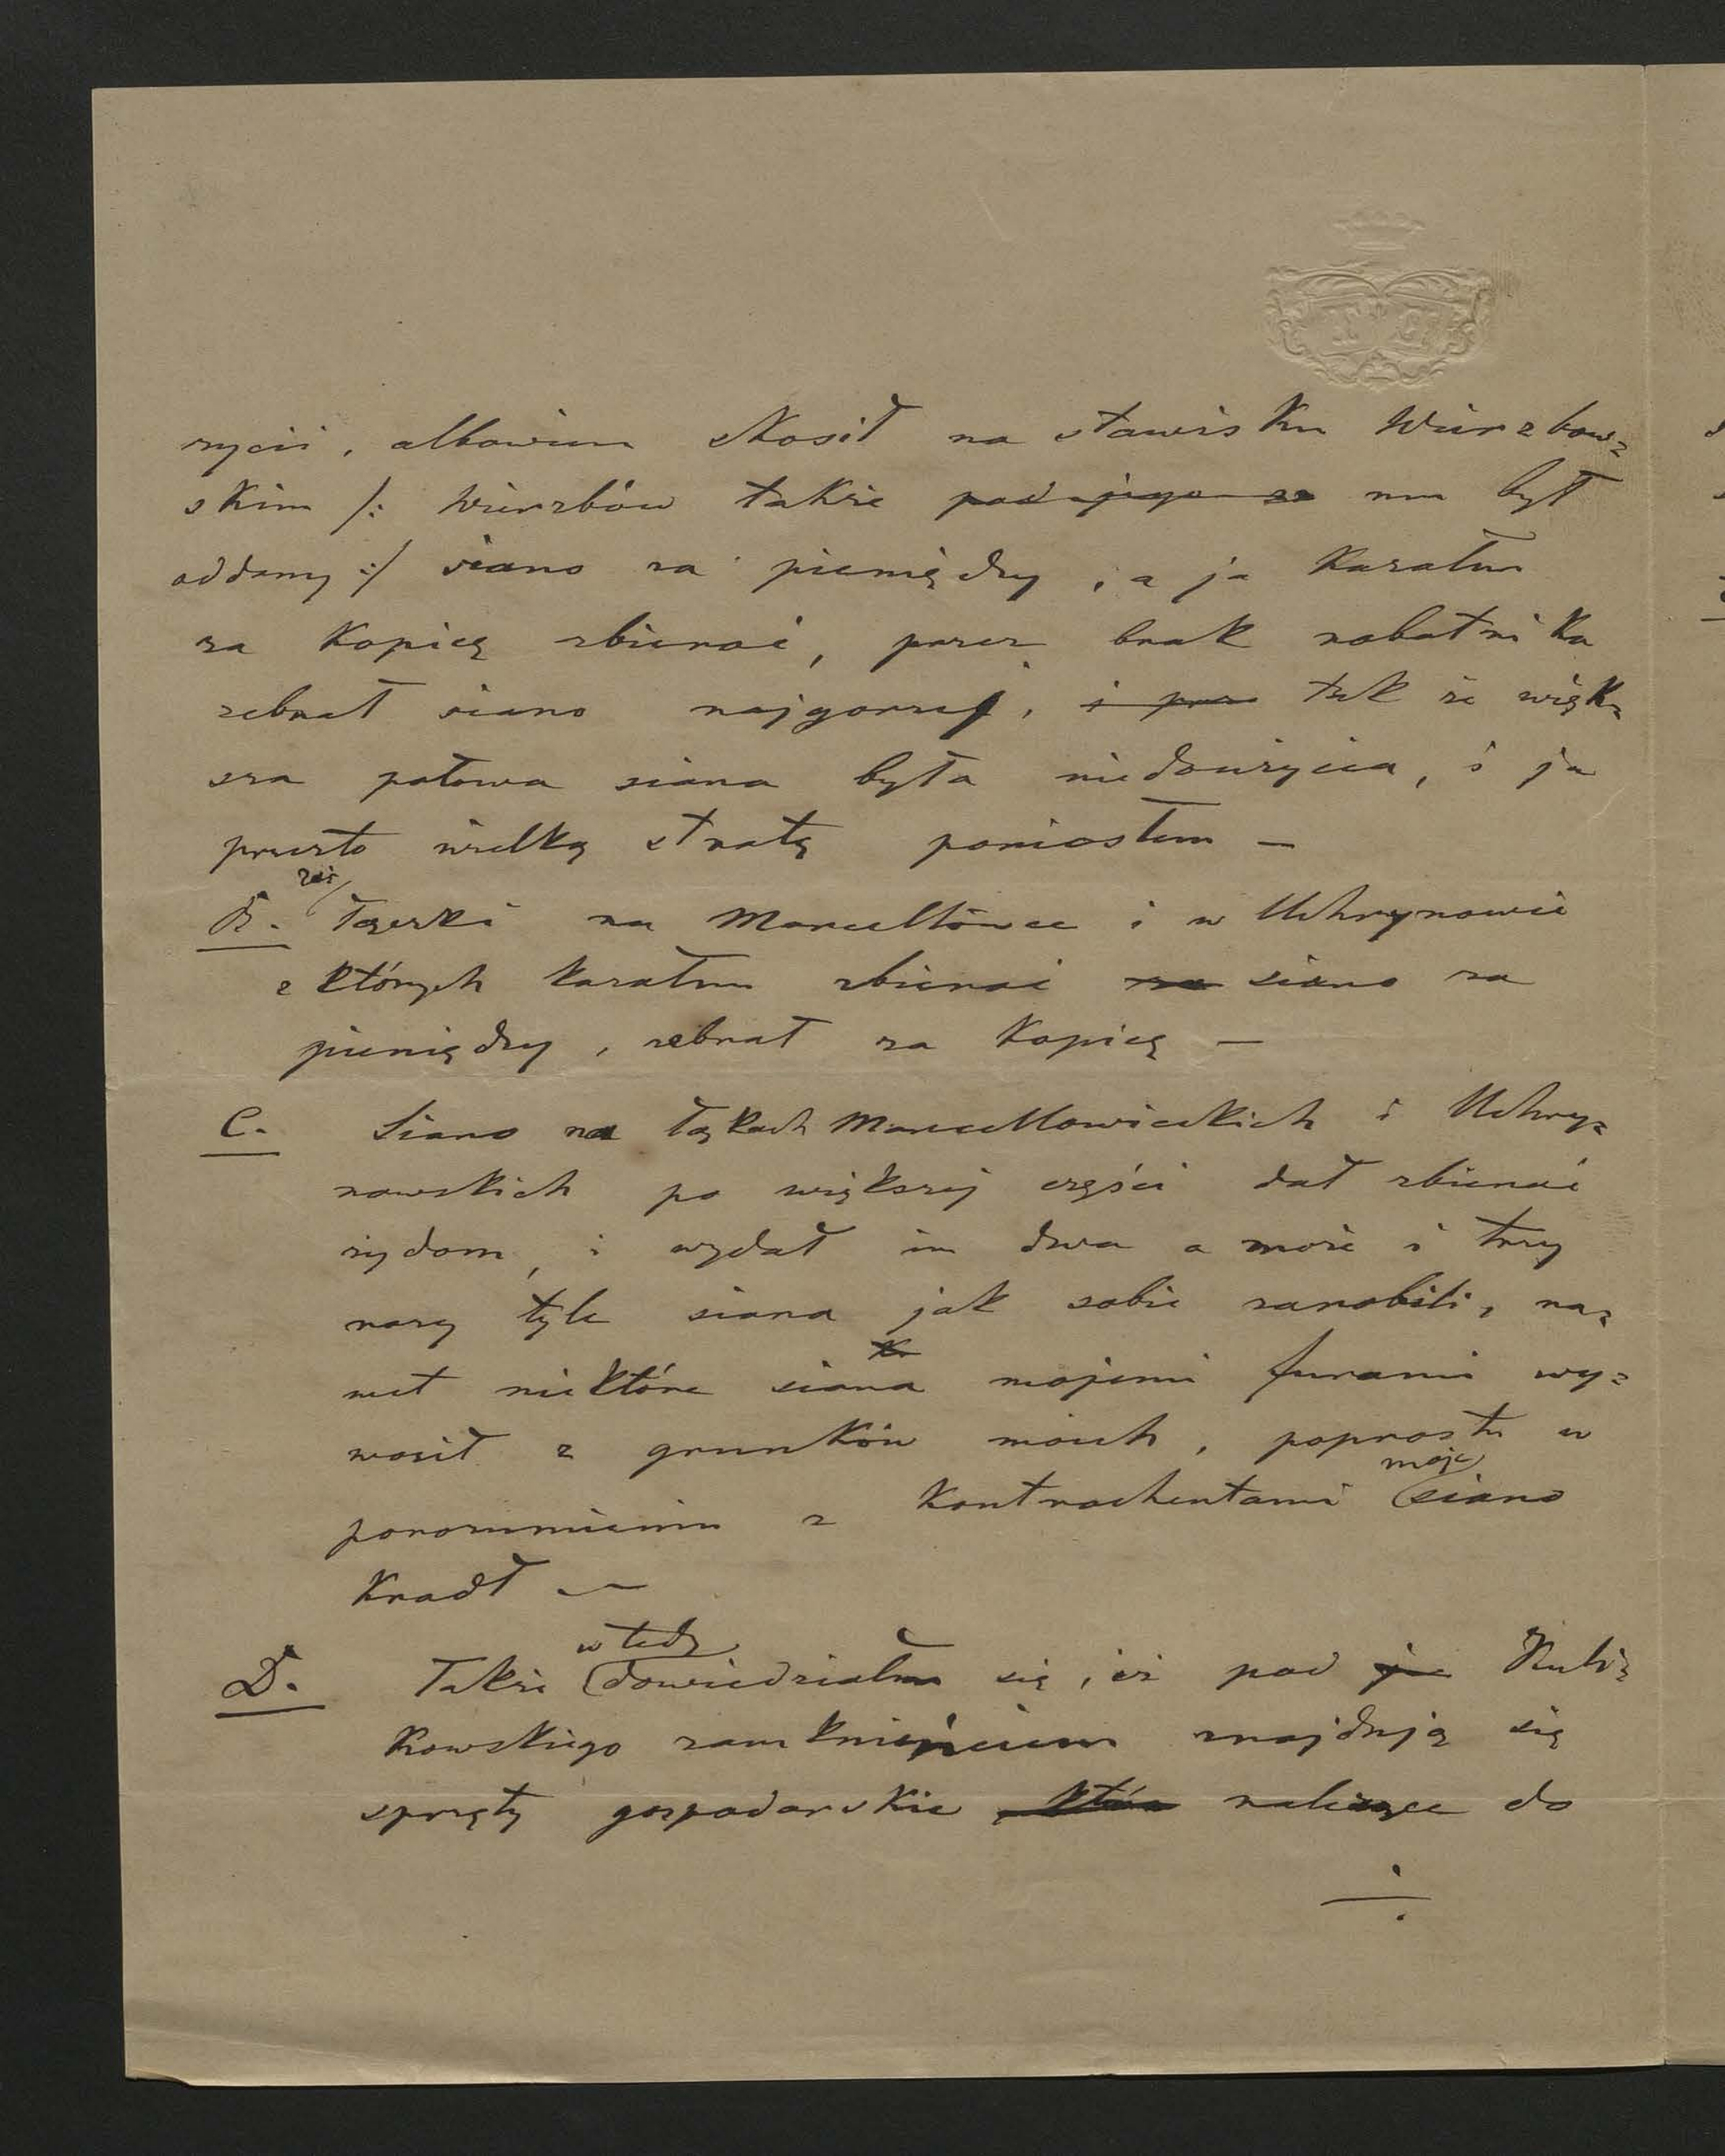 rycii, albowiem skosił na stawisku Wierzbow=
skim /: Wierzbów także ~~pod jego za~~ mu był
oddany :/ siano za pieniędzy, a ja kazałem
za kopicę zbierać, przez brak robotnika
zebrał siano najgorzej, ~~i prze~~ tak że więk=
sza połowa siana była niedowżycia, i ja
przezto wielką stratę poniosłem —
B. zaś Łączki na Marcellówce i w Uhrynowie
z których kazałem zbierać ~~za~~ siano za
pieniędzy, zebrał za kopicę —
C. Siano na łąkach Marcellowieckich i Uhry=
nowskich po większej części dał zbierać
żydom, i wydał im dwa a może i trzy
razy tyle siana jak sobie zarobili, na=
wet niektóre siana mojemi furami wy=
woził z gruntów moich, poprostu w
porozumieniu z kontrachentami moje siano
kradł —
D. Także wtedy dowiedziałem się, iż pod ~~je~~ Kuli=
kowskiego zamknięciem znajdują się
sprzęty gospodarskie ~~które~~ należące do